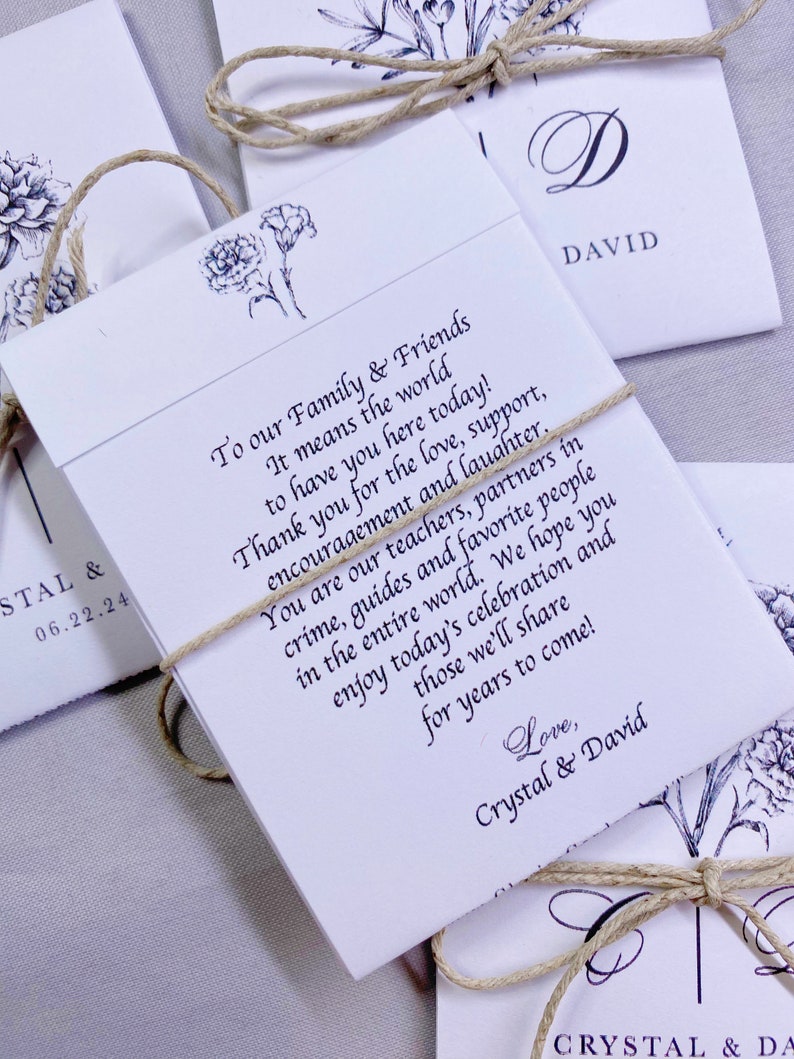 D
DAVID
To our Family & Friends
It means the world
to have you here today!
Thank you for the love, support,
encouragement and laughter.
You are our teachers, partners in
crime, guides and favorite people
in the entire world. We hope you
enjoy today's celebration and
those we'll share
for years to come!
Love,
Crystal & David
STAL &
06.22.24
C D
CRYSTAL & DA